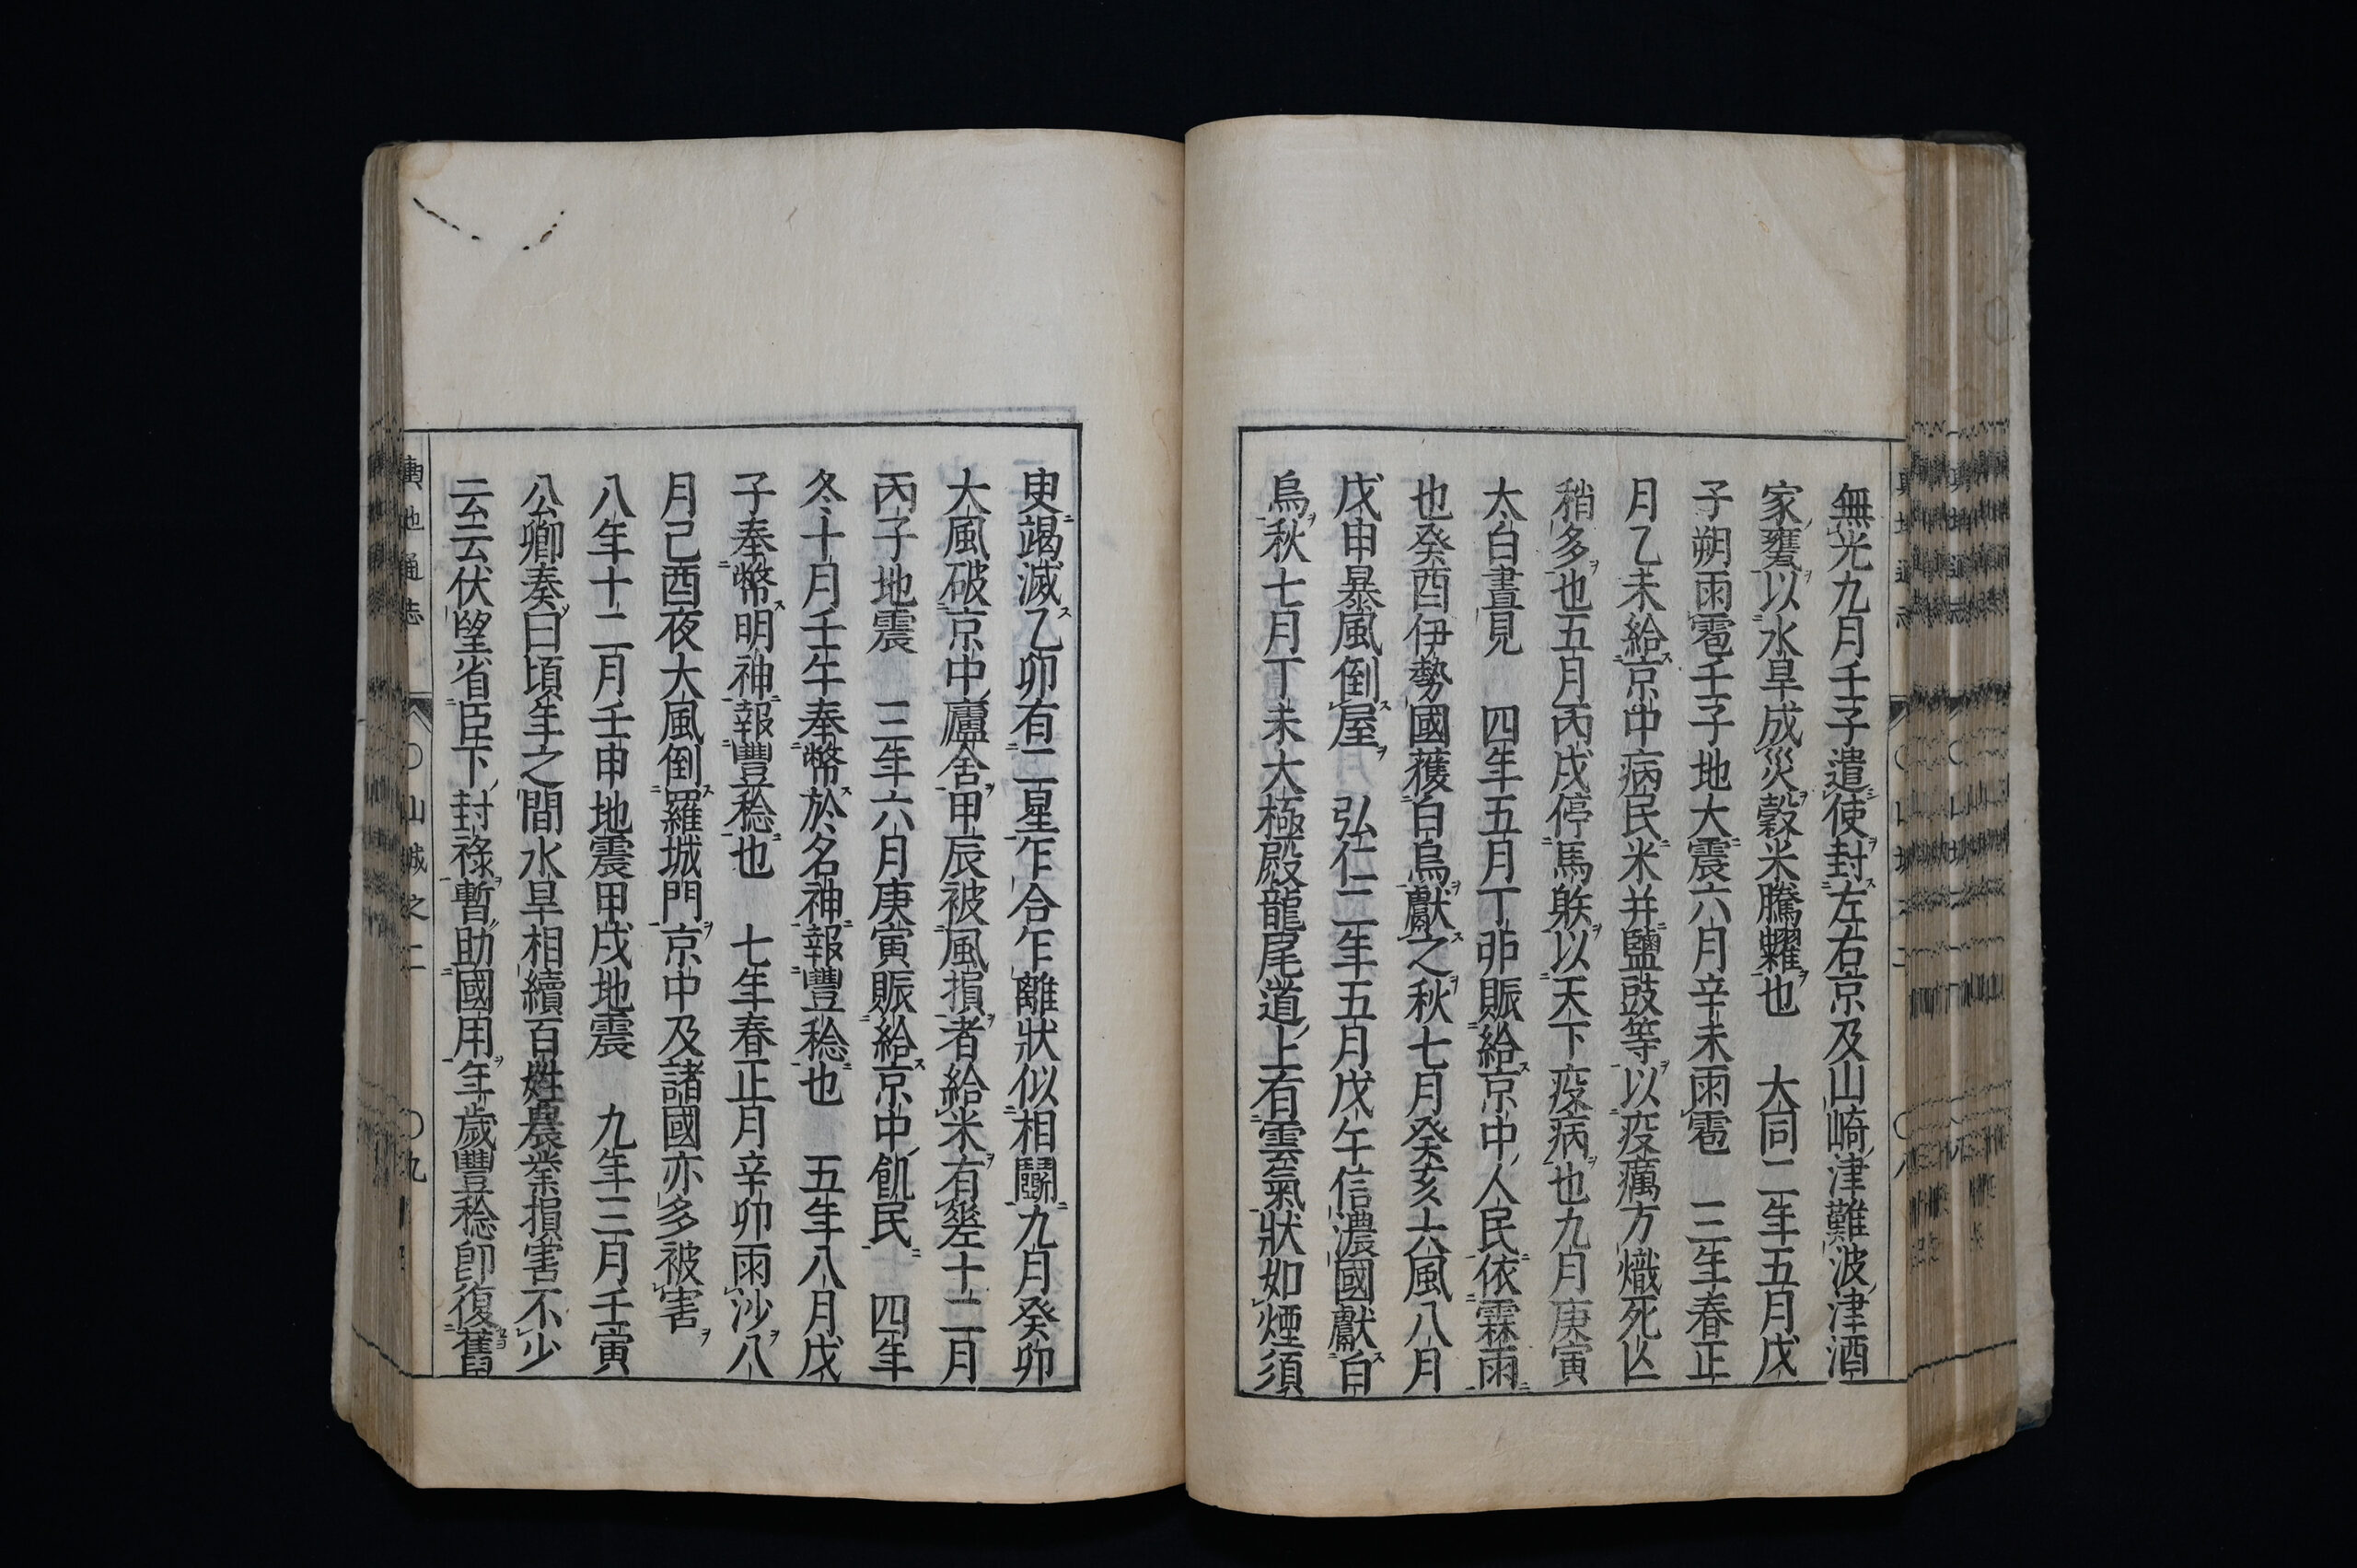 無光九月壬子遣使封左右京及山﨑津難波津酒
家甕以水旱成災穀米騰糶也　大同二年五月戊
子朔雨雹壬子地大震六月辛未雨雹　三年春正
月乙未給京中病民米并鹽豉等以疫癘方熾死亡
稍多也五月丙戌停馬射以天下疫病也九月庚寅
太白晝見　四年五月丁卯賑給京中人民依霖雨
也癸酉伊勢國獲白烏獻之秋七月癸亥大風八月
戊申暴風倒屋　弘仁二年五月戊午信濃國獻白
烏秋七月丁未大極殿龍尾道上有雲氣狀如煙須
臾竭滅乙卯有二星乍合乍離狀似相鬪九月癸卯
大風破京中廬舍甲辰被風損者給米有差十二月
丙子地震　三年六月庚寅賑給京中飢民　四年
冬十月壬午奉幣於名神報豐稔也　五年八月戊
子奉幣明神報豐稔也　七年春正月辛卯雨沙八
月己酉夜大風倒羅城門京中及諸國亦多被害
八年十二月壬申地震甲戌地震　九年三月壬寅
公卿奏曰頃年之間水旱相續百姓農業損害不少
云云伏望省臣下封祿暫助國用年歲豐稔卽復舊
輿地通志　〇山城之二　〇九